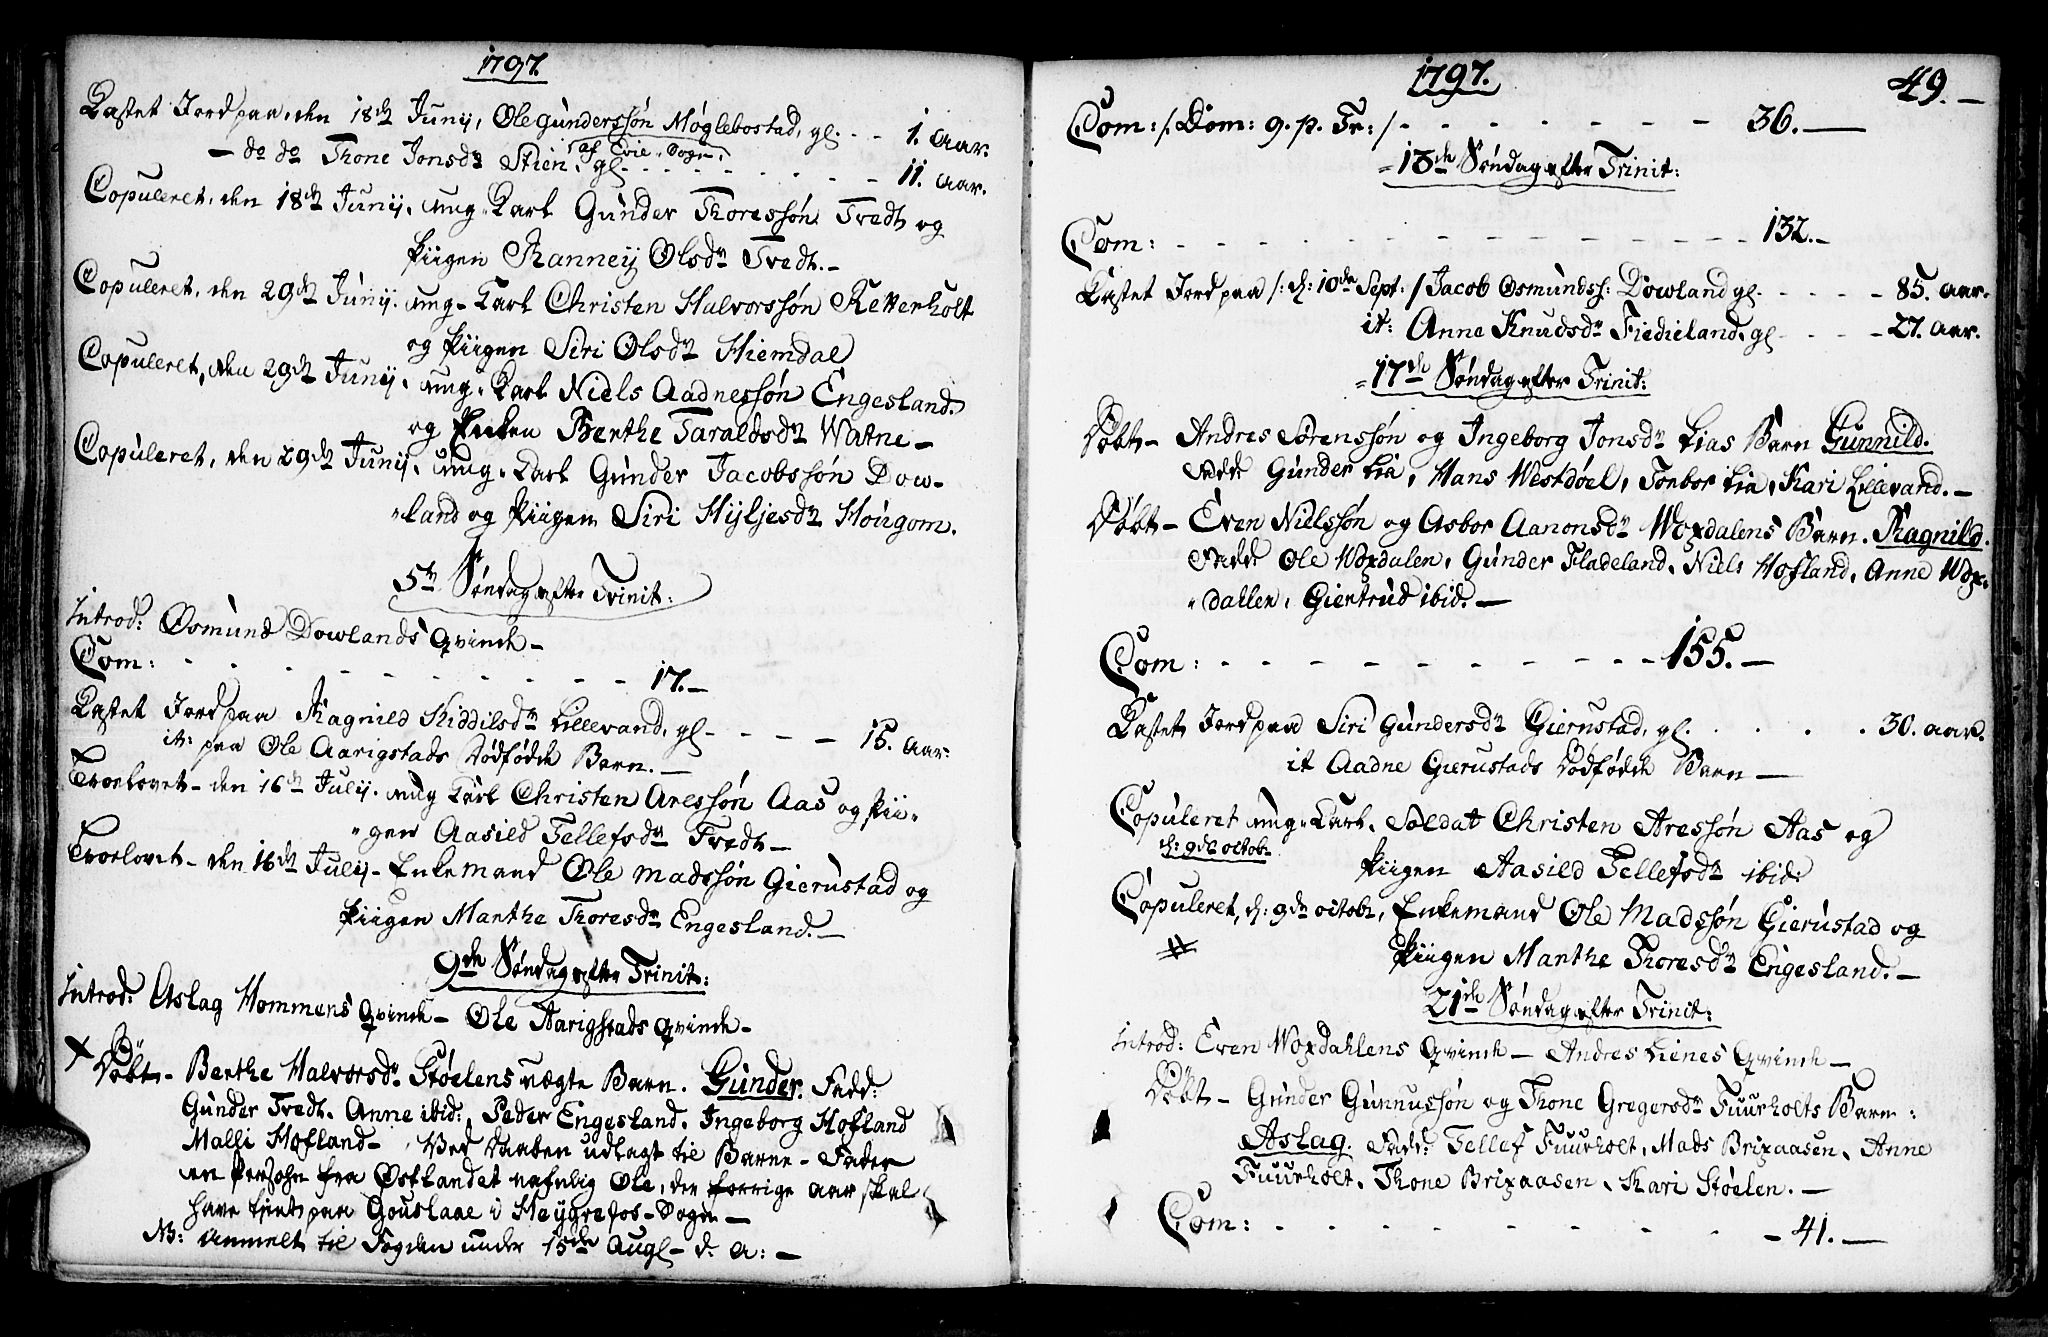 1797.
Kastet Jord paa, den 18de Junij, Ole Gunderssøn Møglebostad, gl. - - 1. Aar.
- do do Thone Jonsdr Stien, af Evie-Sogn, gl. - - - - - - - 11. Aar.
Copuleret, den 18de Junij, ung-Karl Gunder Thoressøn Tvedt og
Piigen Ranneij Olsdr Tvedt.-
Copuleret, den 29de Junij, ung-Karl Christen Halvorssøn Retterholt
og Piigen Siri Olsdr Hiemdal
Copuleret, den 29de Junij, ung-Karl Niels Aadnessøn Engesland.
og Pieken Berthe Taraldsdr Watne-
Copuleret, den 29de Junij, ung-Karl Gunder Jacobssøn Dow-
land og Piigen Siri Hyljesdr Hougom.
5te Søndag efter Trinit:
Introd: Osmund Dowlands Qvinde-
Com: - - - - - - - - - 17.-
Kastet Jord paa Ragnild Kiddilsdr Lillevand, gl - - - - - 15. Aar:
it: paa Ole Aarigstads Dødfødde Barn.-
Troelovet- den 16de Julij. ung Karl Christen Aressøn Aas og Pii-
gen Aasild Tellefsdr Tvedt-
Troelovet- den 16de Julij- Enkemand Ole Madssøn Gierustad og
Piigen Marthe Thoresdr Engesland.-
9de Søndag efter Trinit:
Introd: Aslag Hommens Qvinde- Ole Aarigstads Qvinde-
Døbt- Berthe Halvorsdr Støelens uægte Barn. Gunder. Fadd:
Gunder Tvedt. Anne ibid:, Peder Engesland. Ingeborg Hofland
Malli Hofland-, Ved Daaben udlagt til Barne-Fader
en Persohn fra Østlandet nafnlig Ole, der forrige Aar skal
have tient paa Gouslaae i Heygrefos-Sogn-
NB: Anmelt til Fogden under 15de Augl- d. A: -
1797. 49.-
Com: /: Dom: 9. p. Tr: / - - - - - - - 36.-
13de Søndag efter Trinit:
Com: - - - - - - - - - - - - - 132.-
Kastet Jord paa /: d: 10de Sept: / Jacob Osmundss: Dowland gl. - - - - 85. Aar.
it: Anne Knudsdr Fiedieland, gl - - - - 27. Aar.
17de Søndag efter Trinit:
Døbt- Andres Sørenssøn og Ingeborg Jonsdr Lias Barn Gunnild.
Fadd: Gunder Lia, Hans Westdøel, Tonbor Lia, Kari Lillevand.-
Døbt- Even Nielssøn og Asbor Aanonsdr Woxdalens Barn. Ragnild.
Fadd: Ole Woxdalen, Gunder Fladeland, Niels Hofland, Anne Wox-
dallen, Giertrud ibid.-
Com: - - - - - - - - - 155.-
Kastet Jord paa Siri Gundersdr Gierustad, gl. . . . . 30. Aar.
it Aadne Gierustads Dødfødde Barn-
Copuleret ung-Karl, Soldat Christen Aressøn Aas og
d: 9de octobr
Piigen Aasild Tellefsdr ibid:
Copuleret, d: 9de octobr, Enkemand Ole Madssøn Gierustad og
Piigen Marthe Thoresdr Engesland.-
21de Søndag efter Trinit:
Introd: Even Woxdahlens Qvinde- Andres Lienes Qvinde-
Døbt- Gunder Gunnussøn og Thone Gregersdr Fuurholts Barn:
Aslag. Fadd: Tellef Fuurholt, Mads Brixaasen, Anne
Fuurholt, Thone Brixaasen, Kari Støelen.-
Com: - - - - - - - - - 41.-